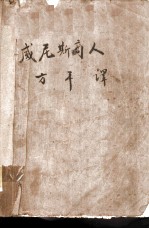 威尼斯商人
方平译